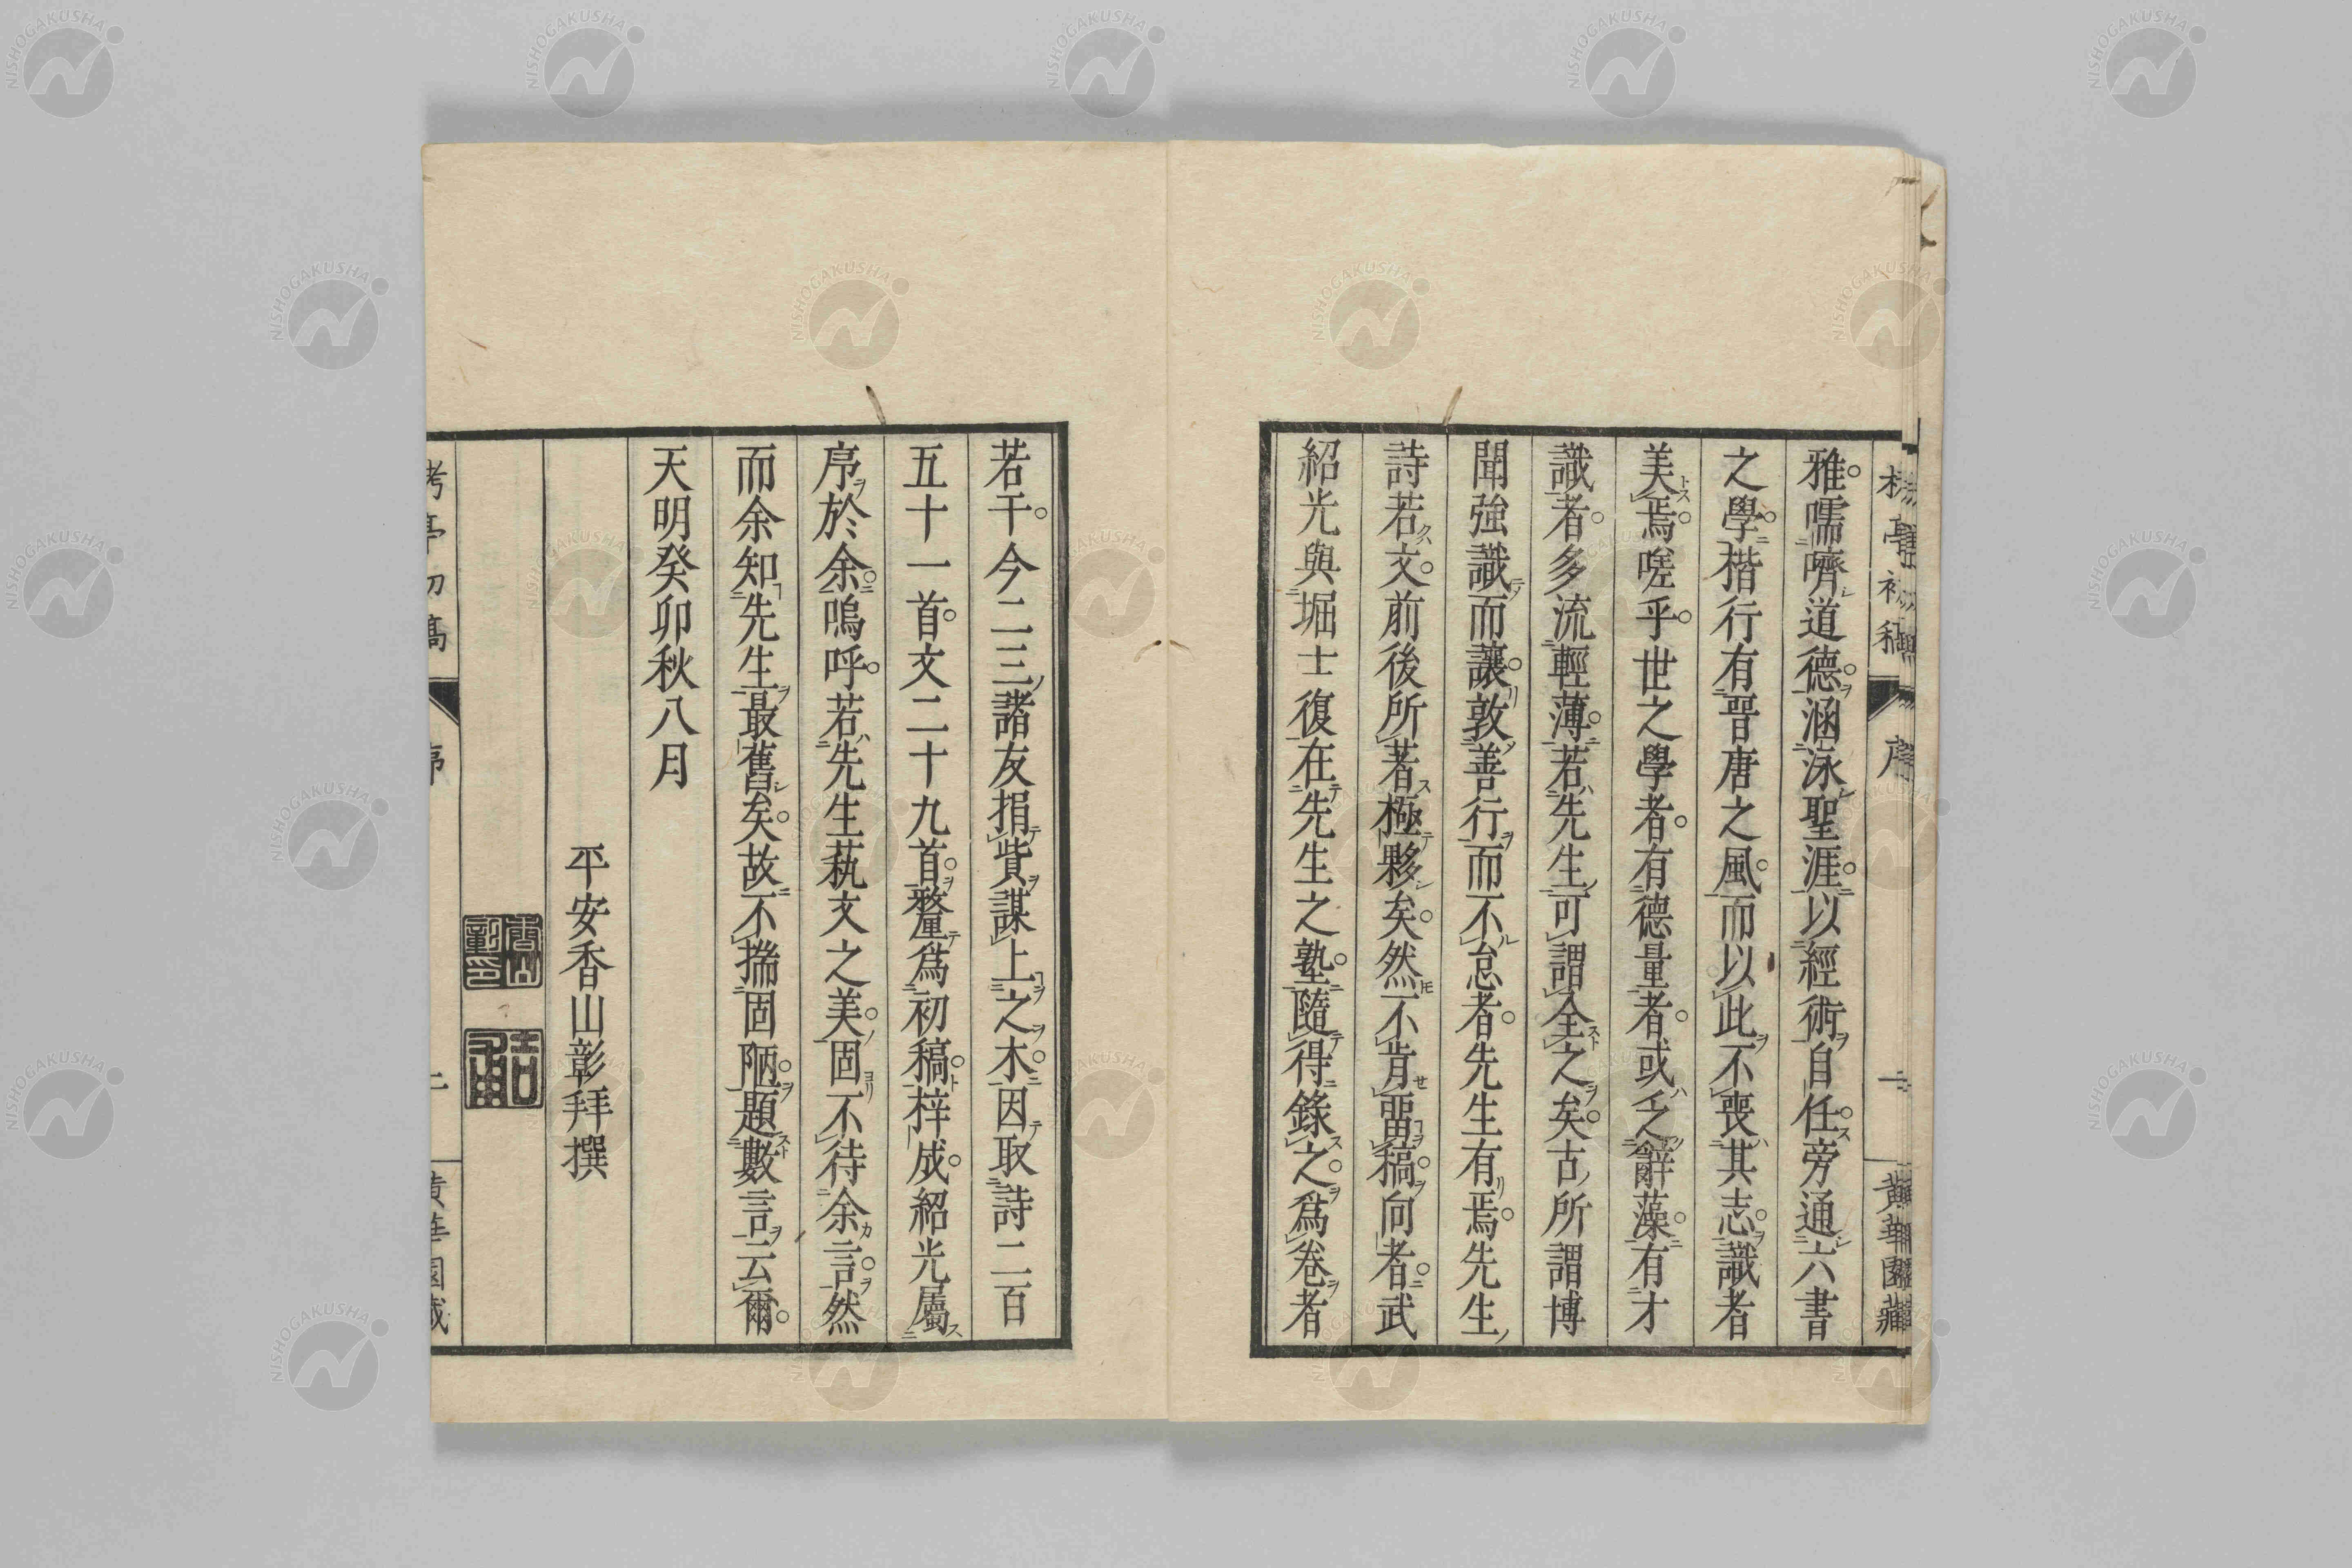 雅。嚅嚌道德。涵泳聖涯。以經術自任。旁通六書
之學。楷行有晋唐之風。而以此不喪其志。識者
美焉。嗟乎。世之學者。有德量者。或乏辭藻。有才
識者。多流輕薄。若先生可謂全之矣。古所謂博
聞強識而讓。敦善行而不怠者。先生有焉。先生
詩若文。前後所著極夥矣。然不肯畱稿。向者。武
紹光與堀士復在先生之塾。隨得錄之。為卷者
若干。今二三諸友捐貲謀上之木。因取詩二百
五十一首。文二十九首。釐爲初稿。梓成。紹光屬
序於余。嗚呼。若先生蓺文之美。固不待余言。然
而余知先生最舊矣。故不揣固陋。題數言云爾。
天明癸卯秋八月
平安香山彰拜撰
序
二
黃華園藏
NISHOGAKUSHA